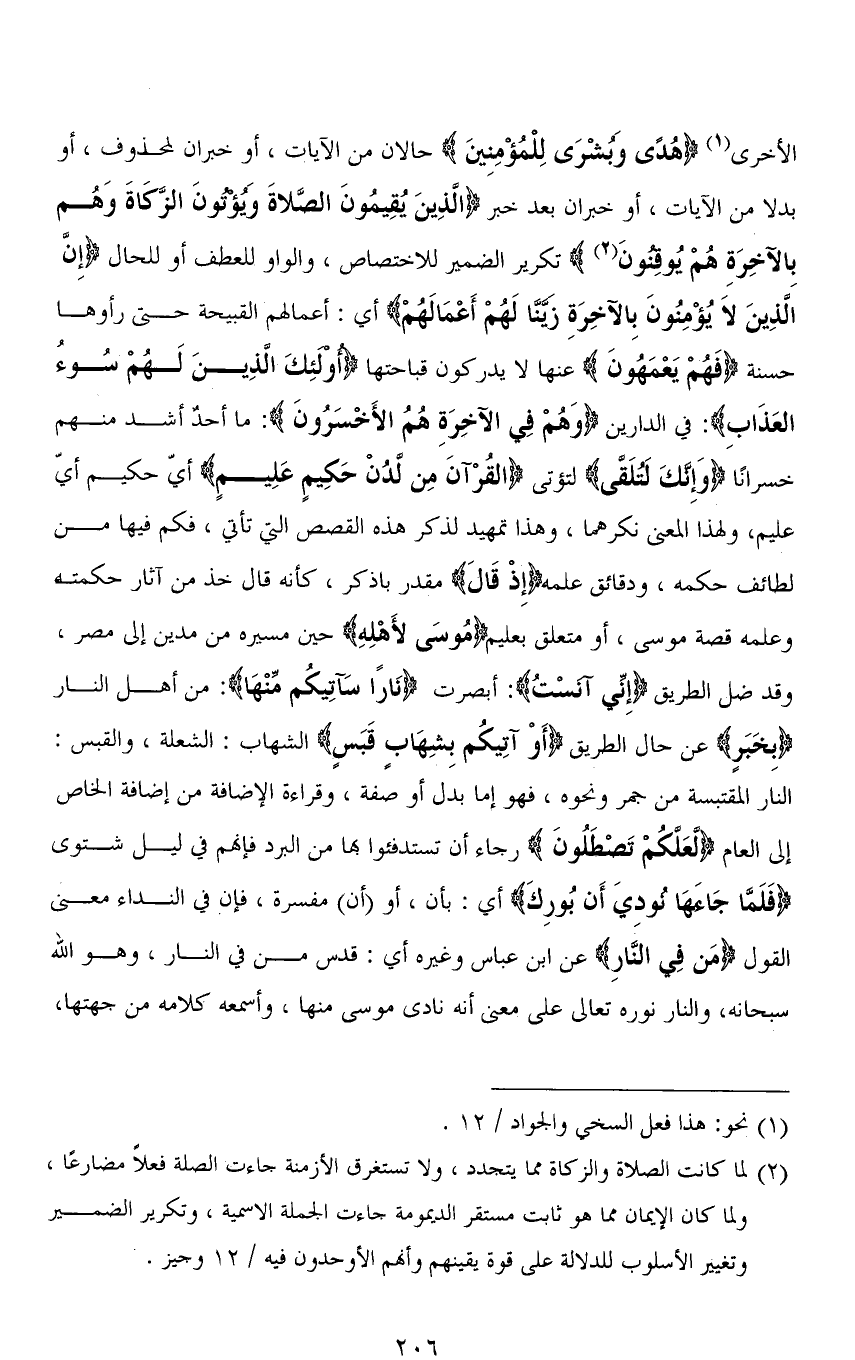 الأخرى(١) ﴿هُدًى وَبُشْرَى لِلْمُؤْمِنِينَ﴾ حالان من الآيات ، أو خبران لمحذوف ، أو
بدلا من الآيات ، أو خبران بعد خبر ﴿الَّذِينَ يُقِيمُونَ الصَّلاةَ وَيُؤْتُونَ الزَّكَاةَ وَهُم
بِالآخِرَةِ هُمْ يُوقِنُونَ(٢)﴾ تكرير الضمير للاختصاص ، والواو للعطف أو للحال ﴿إِنَّ
الَّذِينَ لاَ يُؤْمِنُونَ بِالآخِرَةِ زَيَّنَّا لَهُمْ أَعْمَالَهُمْ﴾ أي : أعمالهم القبيحة حتى رأوها
حسنة ﴿فَهُمْ يَعْمَهُونَ﴾ عنها لا يدركون قباحتها ﴿أُوْلَئِكَ الَّذِينَ لَهُمْ سُوءُ
العَذَابِ﴾: في الدارين ﴿وَهُمْ فِي الآخِرَةِ هُمُ الأَخْسَرُونَ﴾: ما أحدٌ أشد منهم
خسرانًا ﴿وَإِنَّكَ لَتُلَقَّى﴾ لتؤتى ﴿القُرْآنَ مِن لَّدُنْ حَكِيمٍ عَلِيمٍ﴾ أيّ حكيم أيّ
عليم، ولهذا المعنى نكرهما ، وهذا تمهيد لذكر هذه القصص التي تأتي ، فكم فيها من
لطائف حكمه ، ودقائق علمه﴿إِذْ قَالَ﴾ مقدر باذكر ، كأنه قال خذ من آثار حكمته
وعلمه قصة موسى ، أو متعلق بعليم﴿مُوسَى لأَهْلِهِ﴾ حين مسيره من مدين إلى مصر ،
وقد ضل الطريق ﴿إِنِّي آنَسْتُ﴾: أبصرت ﴿نَارًا سَآتِيكُم مِّنْهَا﴾: من أهل النار
﴿بِخَبَرٍ﴾ عن حال الطريق ﴿أَوْ آتِيكُم بِشِهَابٍ قَبَسٍ﴾ الشهاب : الشعلة ، والقبس :
النار المقتبسة من جمر ونحوه ، فهو إما بدل أو صفة ، وقراءة الإضافة من إضافة الخاص
إلى العام ﴿لَّعَلَّكُمْ تَصْطَلُونَ﴾ رجاء أن تستدفئوا بها من البرد فإنهم في ليل شتوى
﴿فَلَمَّا جَاءَهَا نُودِيَ أَن بُورِكَ﴾ أي : بأن ، أو (أن) مفسرة ، فإن في النداء معنى
القول ﴿مَن فِي النَّارِ﴾ عن ابن عباس وغيره أي : قدس من في النار ، وهو الله
سبحانه، والنار نوره تعالى على معنى أنه نادى موسى منها ، وأسمعه كلامه من جهتها،
(١) نحو: هذا فعل السخي والجواد / ١٢ .
(٢) لما كانت الصلاة والزكاة مما يتجدد ، ولا تستغرق الأزمنة جاءت الصلة فعلاً مضارعًا ،
ولما كان الإيمان مما هو ثابت مستقر الديمومة جاءت الجملة الاسمية ، وتكرير الضمير
وتغيير الأسلوب للدلالة على قوة يقينهم وأنهم الأوحدون فيه / ١٢ وجيز .
٢٠٦